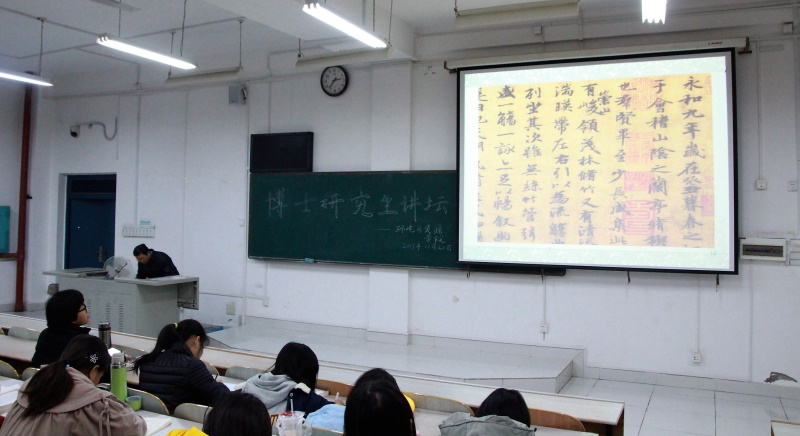 博士研究生讲坛
永和九年歲在癸丑暮春之
于會稽山陰之蘭亭脩稧
也羣賢畢至少長咸集此
有崇山峻領茂林脩竹又有清流
湍暎帶左右引以為流觴
列坐其次雖無絲竹管絃
盛一觴一詠亦足以暢敘幽
是日也天朗氣清